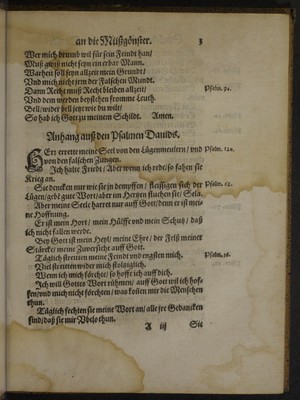 an die Müßgönster. 3
Wer mich drumb wil für sein Feindt han/
Muß gwiß nicht seyn ein erbar Mann.
Warheit soll seyn allzeit mein Grundt/
Und mich nicht jern der Falschen Mundt.
Dann Recht muß Recht bleiben allzeit/ Psalm. 94.
Und dem werden beystehen fromme Leuth.
Bell/ wider bell jetzt wie du wilt/
So hab ich Gott zu meinem Schildt. Amen.
Anhang auß den Psalmen Dauids.
HErr errette meine Seel von den Lügenmeulern/ und Psalm. 120.
von den falschen Zungen.
Ich halte Friedt/ Aber wenn ich redt/ so fahen sie
Krieg an.
Sie dencken nur wie sie jn dempffen/ fleissigen sich der Psalm. 62.
Lügen/ geben gute Wort/ aber im Hertzen fluchen sie/ Sela.
Aber meine Seele harret nur auff Gott/ denn er ist mei-
ne Hoffnung.
Er ist mein Hort/ mein Hülffe und mein Schutz/ daß
ich nicht fallen werde.
Bey Gott ist mein Heyl/ meine Ehre/ der Felß meiner
Stärcke/ meine Zuversicht auff Gott.
Täglich streitten meine Feinde und engsten mich. Psalm. 56.
Viel streitten wider mich stoltziglich.
Wenn ich mich förchte/ so hoffe ich auff dich.
Ich will Gottes Wort rühmen/ auff Gott wil ich hof-
fen/ und mich nicht förchten/ was solten mir die Menschen
thun.
Täglich fechten sie meine Wort an/ alle jre Gedancken
sind/ daß sie mir Vbels thun.
A iij Sie